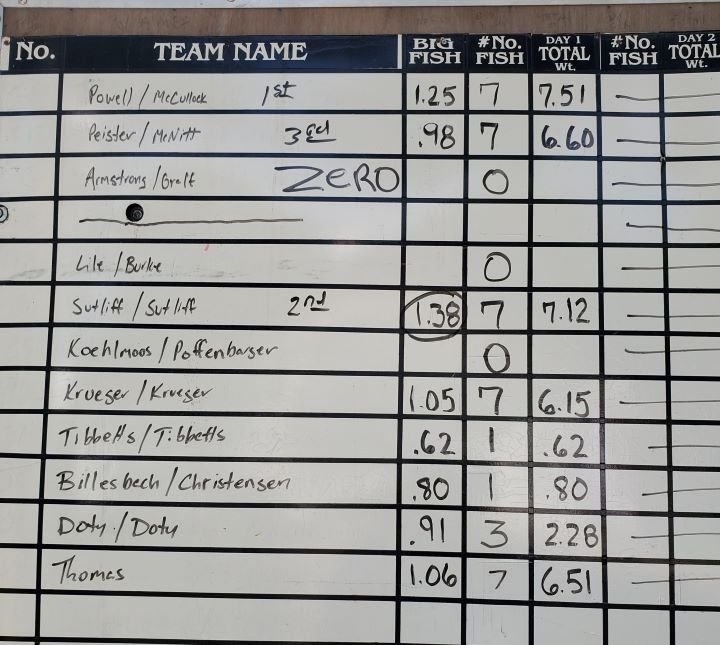 No. TEAM NAME BIG FISH #No. FISH DAY 1 TOTAL Wt. #No. FISH DAY 2 TOTAL Wt.
Powell / McCullock 1st 1.25 7 7.51
Peister / McNitt 3rd .98 7 6.60
Armstrong / Grelt ZERO 0
Lile / Burke 0
Sutliff / Sutliff 2nd 1.38 7 7.12
Koehlmoos / Poffenbarger 0
Krueger / Krueger 1.05 7 6.15
Tibbetts / Tibbetts .62 1 .62
Billesbach / Christensen .80 1 .80
Doty / Doty .91 3 2.28
Thomas 1.06 7 6.51